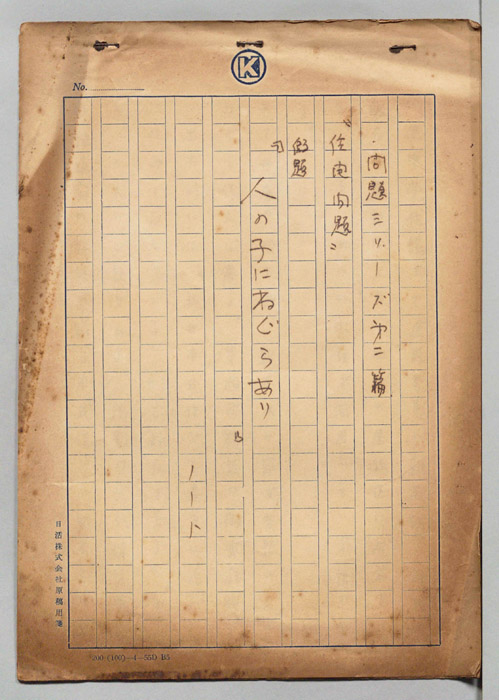 K
No.
問題シリーズ第二篇
"住宅問題"
仮題
「人の子にねぐらあり」
ノート
日活株式会社原稿用箋